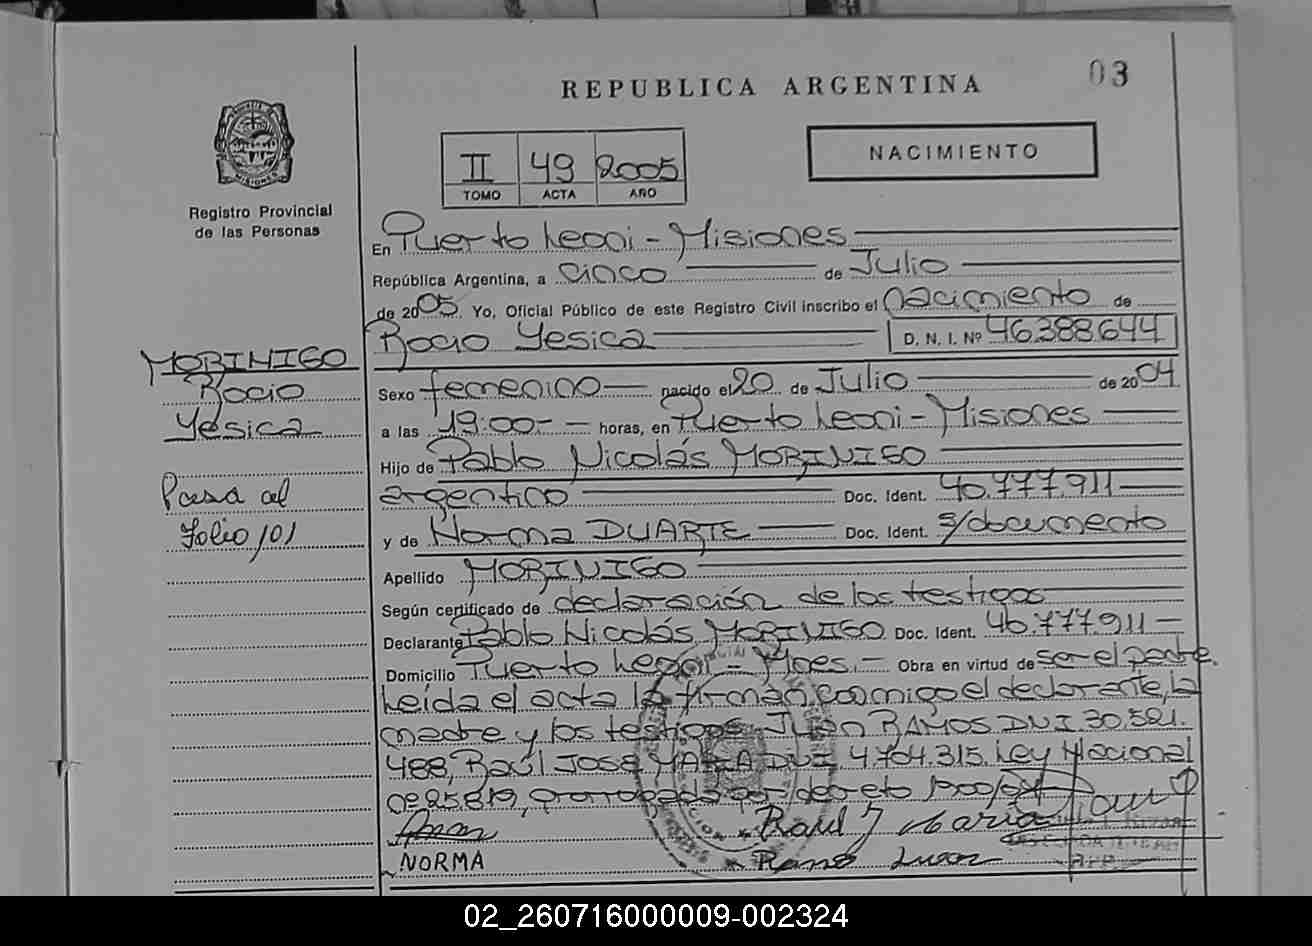 REPUBLICA ARGENTINA
03
MISIONES
Registro Provincial
de las Personas
II 49 2005
TOMO ACTA AÑO
NACIMIENTO
En Puerto Leoni - Misiones
República Argentina, a cinco de Julio
de 2005 Yo, Oficial Público de este Registro Civil inscribo el nacimiento de
Rocio Yesica D. N. I. Nº 46.388.644
MORINIGO
Rocio
Yesica
Pasa al
Folio 101
Sexo femenino nacido el 20 de Julio de 2004
a las 19:00.- horas, en Puerto Leoni - Misiones
Hijo de Pablo Nicolás MORINIGO
argentino Doc. Ident. 40.777.911
y de Norma DUARTE Doc. Ident. s/documento
Apellido MORINIGO
Según certificado de declaración de los testigos
Declarante Pablo Nicolás MORINIGO Doc. Ident. 40.777.911
Domicilio Puerto Leoni - Mnes.- Obra en virtud de ser el padre.
Leída el acta la firman conmigo el declarante, la
madre y los testigos Juan RAMOS DNI. 30.521.
488, Raúl José MARIA DNI. 4.704.315. Ley Nacional
nº 25.819, prorrogada por decreto
Raul J Maria
NORMA
Ramo Juan
02_260716000009-002324